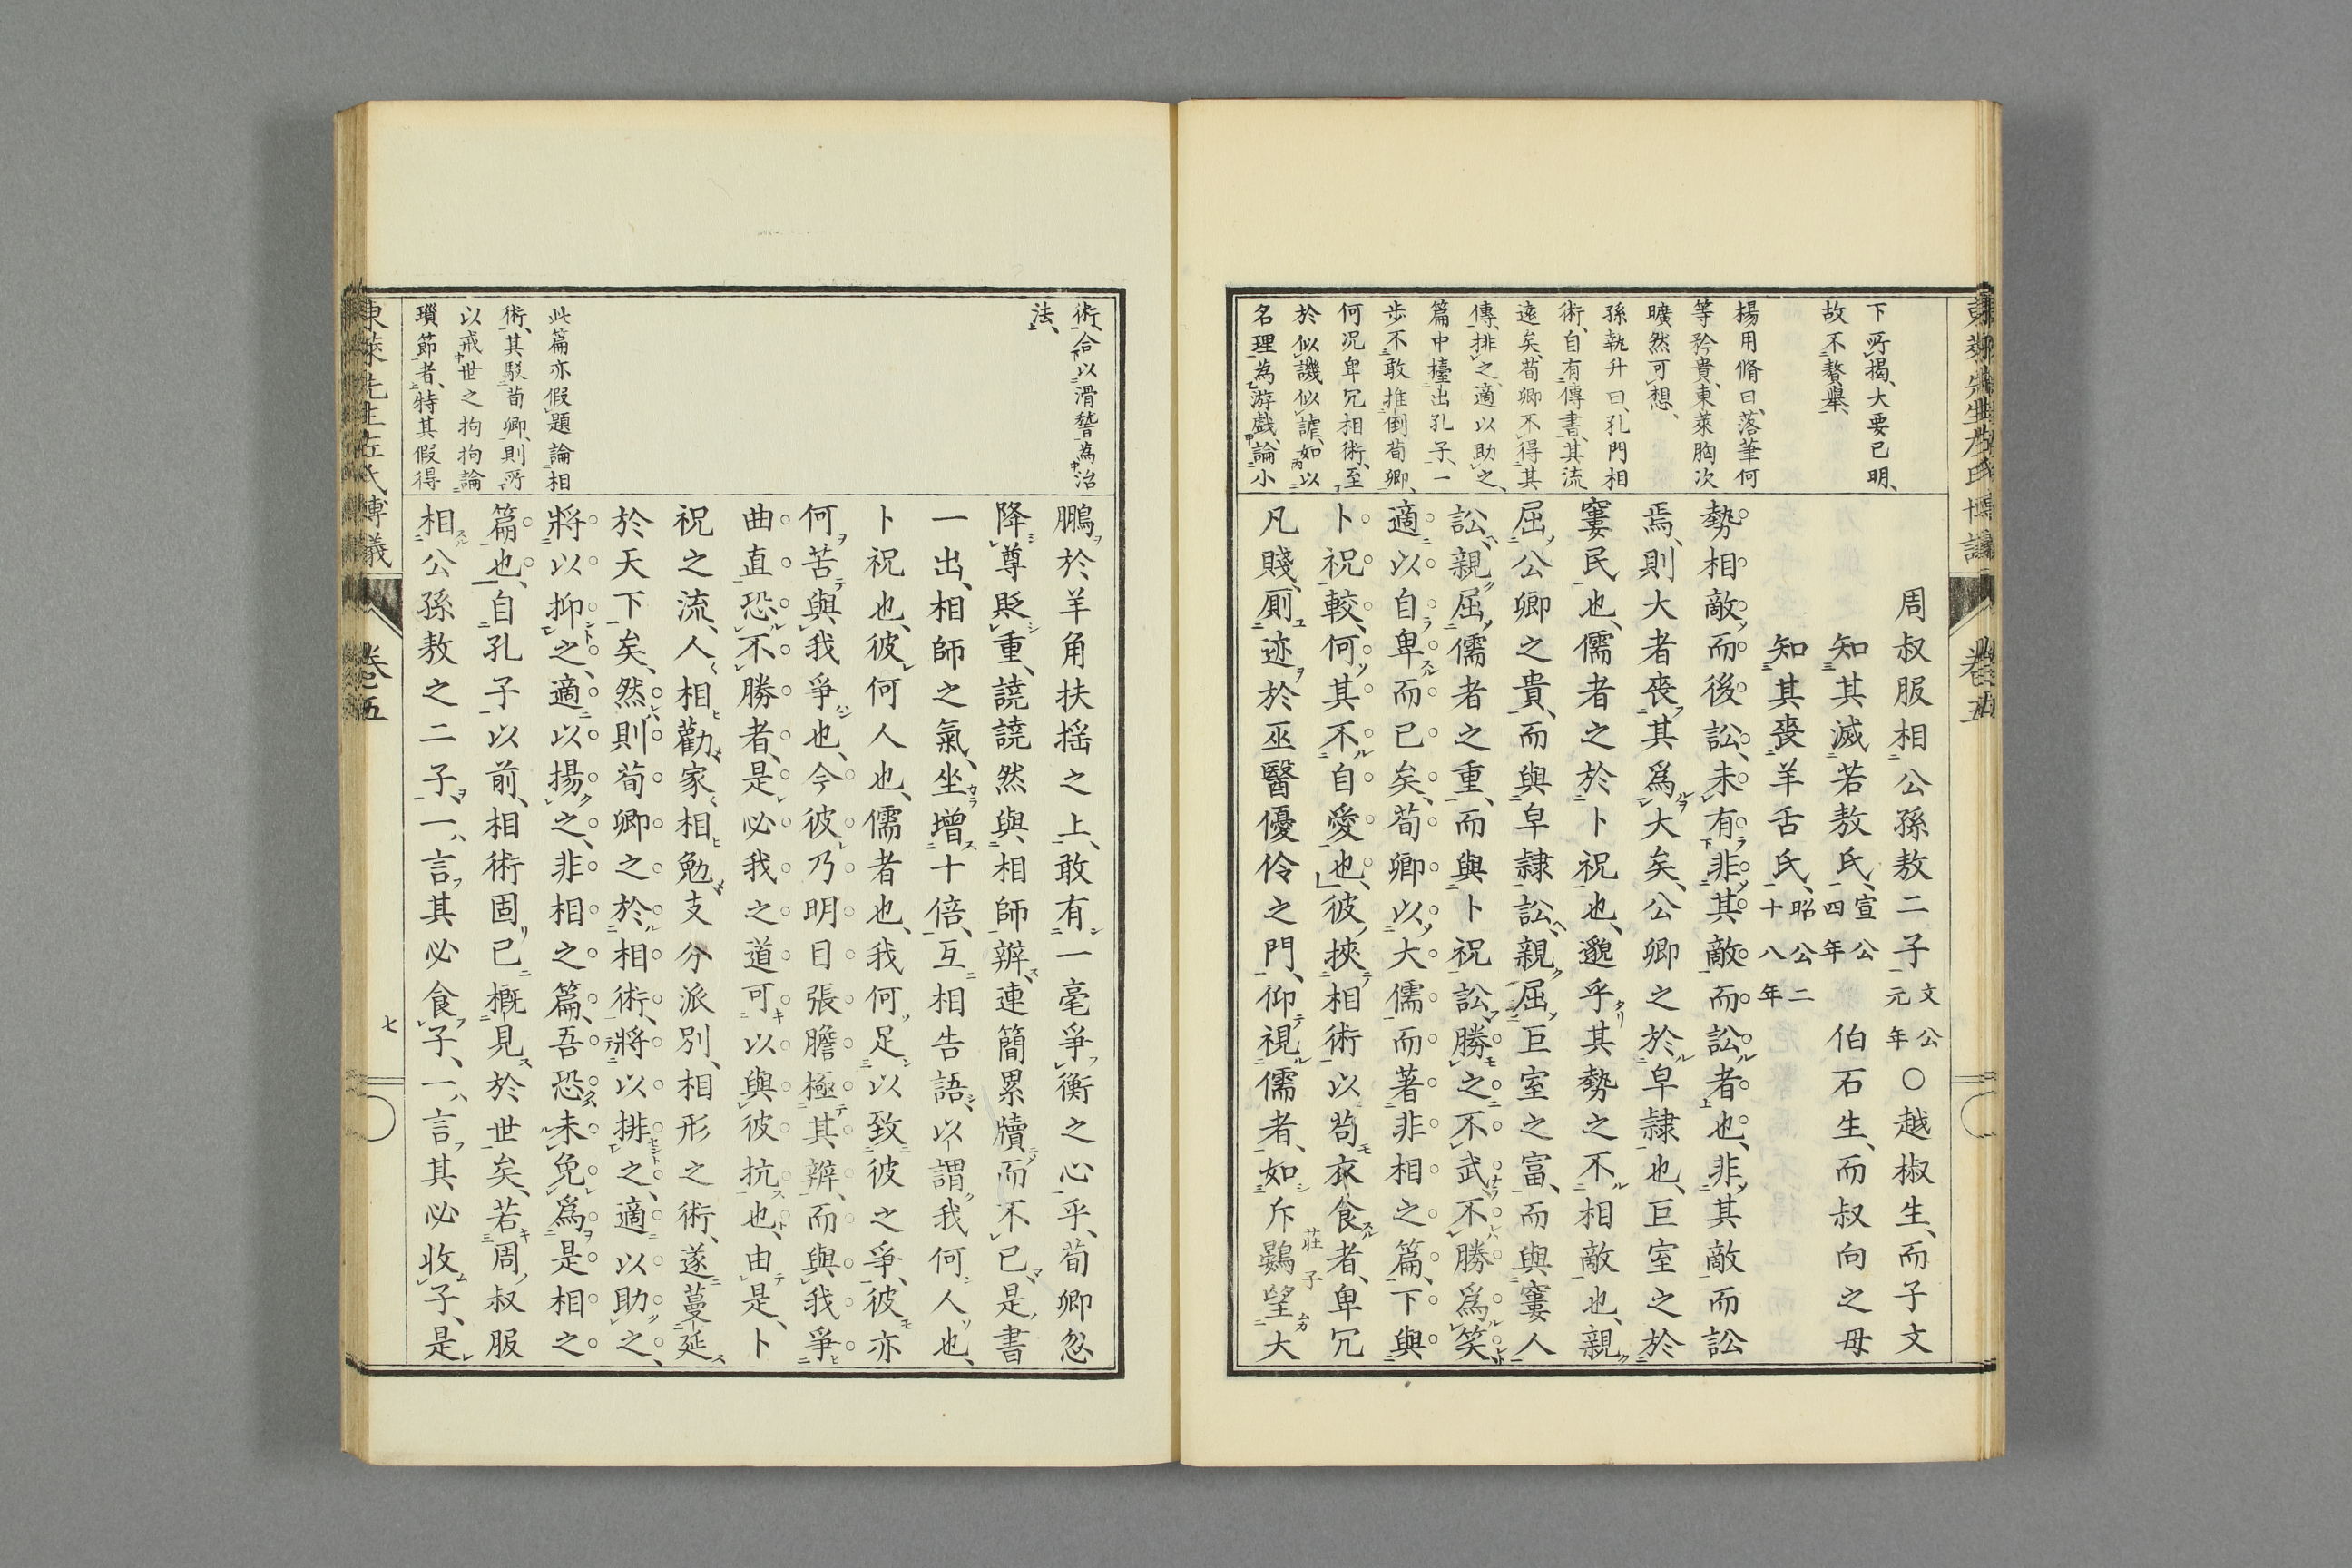 下所揭、大要已明、
故不贅舉、
揚用脩曰、落筆何
等矜貴、東萊胸次
曠然可想、
孫執升曰、孔門相
術、自有傳書、其流
遠矣、荀卿不得其
傳、排之適以助之、
篇中擡出孔子、一
步不敢推倒荀卿、
何况卑冗相術、至
於似譏似謔、如以
名理為游戲、論小
周叔服相公孫敖二子文公元年○越椒生、而子文
知其滅若敖氏、宣公四年 伯石生、而叔向之母
知其喪羊舌氏、昭公二十八年
勢相敵而後訟、未有非其敵而訟者也、非其敵而訟
焉、則大者喪其爲大矣、公卿之於皁隷也、巨室之於
窶民也、儒者之於卜祝也、邈乎其勢之不相敵也、親
屈公卿之貴、而與皁隷訟、親屈巨室之富、而與窶人
訟、親屈儒者之重、而與卜祝訟、勝之不武、不勝爲笑、
適以自卑而已矣、荀卿以大儒而著非相之篇、下與
卜祝較、何其不自愛也、彼挾相術以苟衣食者、卑冗
凡賤、厠迹於巫醫優伶之門、仰視儒者、如斥鷃望大
莊子
東萊先生左氏博議 卷五
術、合以滑稽為治
法、
此篇亦假題論相
術、其駁荀卿、則所
以戒世之拘拘論
瑣節者、特其假得
鵬於羊角扶摇之上、敢有一毫爭衡之心乎、荀卿忽
降尊貶重、譊譊然與相師辨、連簡累牘而不已、是書
一出、相師之氣、坐增十倍、互相告語、以謂我何人也、
卜祝也、彼何人也、儒者也、我何足以致彼之爭、彼亦
何苦與我爭也、今彼乃明目張膽極其辨、而與我爭
曲直、恐不勝者、是必我之道可以與彼抗也、由是、卜
祝之流、人人相勸、家家相勉、支分派別、相形之術、遂蔓延
於天下矣、然則荀卿之於相術、將以排之、適以助之、
將以抑之、適以揚之、非相之篇、吾恐未免爲是相之
篇也、自孔子以前、相術固已概見於世矣、若周叔服
相公孫敖之二子、一言其必食子、一言其必收子、是
東萊先生左氏博議 卷五 七